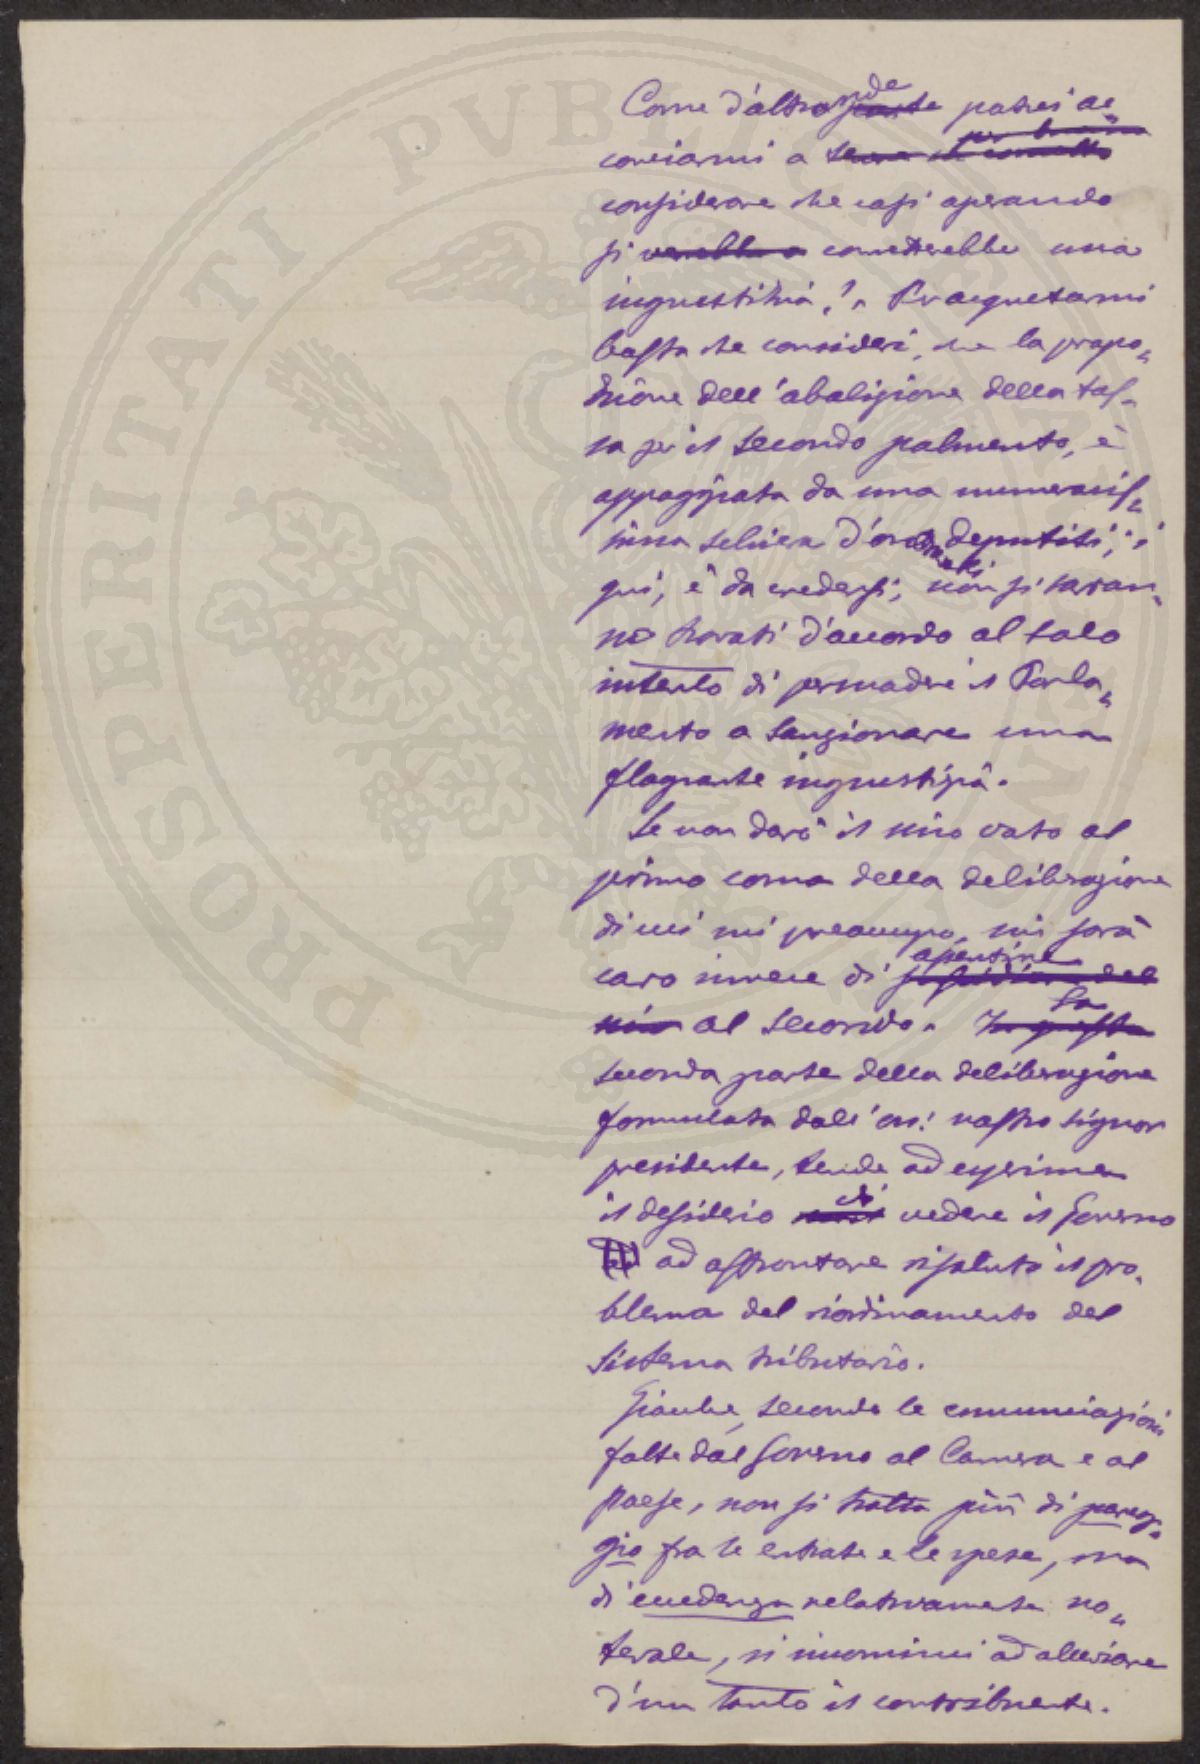 Come d'altronde potrei ac„
conciarmi a
considerare che così operando
si commetterebbe una
ingiustizia?. Per acquetarmi
basta che consideri, che la propo„
sizione dell'abolizione della tas„
sa per il secondo palmento, è
appoggiata da una numerosis„
sima schiera d'onor deputati; i
qui, è da credersi, non si saran„
no trovati d'accordo al solo
intento di persuadere il Parla„
mento a sanzionare una
flagrante ingiustizia.
Se non darò il mio voto al
primo coma della deliberazione
di cui mi preoccupo, mi sarà
caro invece di
al secondo. La
seconda parte della deliberazione
formulata dall'on: nostro signor
presidente, tende ad esprimere
il desiderio di vedere il Governo
ad affrontare risoluto il pro„
blema del riordinamento del
sistema tributario.
Giacchè, secondo le comunicazioni
fatte dal Governo al Camera e al
Paese, non si tratta più di pareg„
gio fra le entrate e le spese, ma
di eccedenza relativamente no„
tevole, si incominci ad alleviare
d'un tanto il contribuente.
PROSPERITATI PVBLICAE